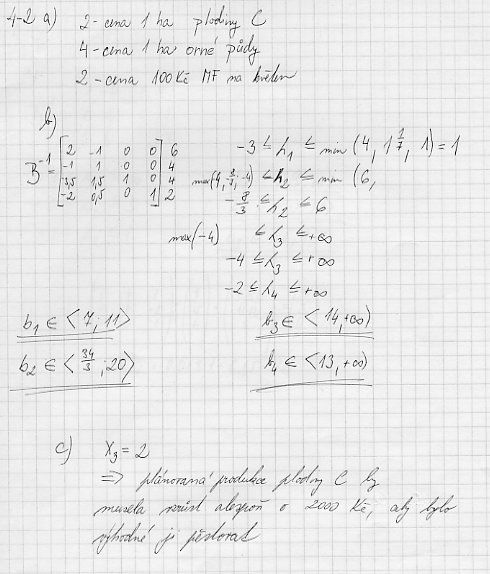 4-2 a) 2 - cena 1 ha plodiny C
4 - cena 1 ha orné půdy
2 - cena 100 Kč MF na květen
b)
B⁻¹ = [2 -1 0 0] 6
[-1 1 0 0] 4
[3,5 1,5 1 0] 4
[-2 0,5 0 1] 2
-3 ≤ h₁ ≤ min (4, 1 1/7, 1) = 1
max(-4, -8/3, -4) ≤ h₂ ≤ min (6,
-8/3 ≤ h₂ ≤ 6
max(-4) ≤ h₃ ≤ +∞
-4 ≤ h₃ ≤ +∞
-2 ≤ h₄ ≤ +∞
b₁ ∈ <7; 11>
b₂ ∈ <34/3; 20>
b₃ ∈ <14, +∞)
b₄ ∈ <13, +∞)
c) X₃ = 2
=> plánovaná produkce plodiny C by
musela vzrůst alespoň o 2000 Kč, aby bylo
výhodné ji pěstovat